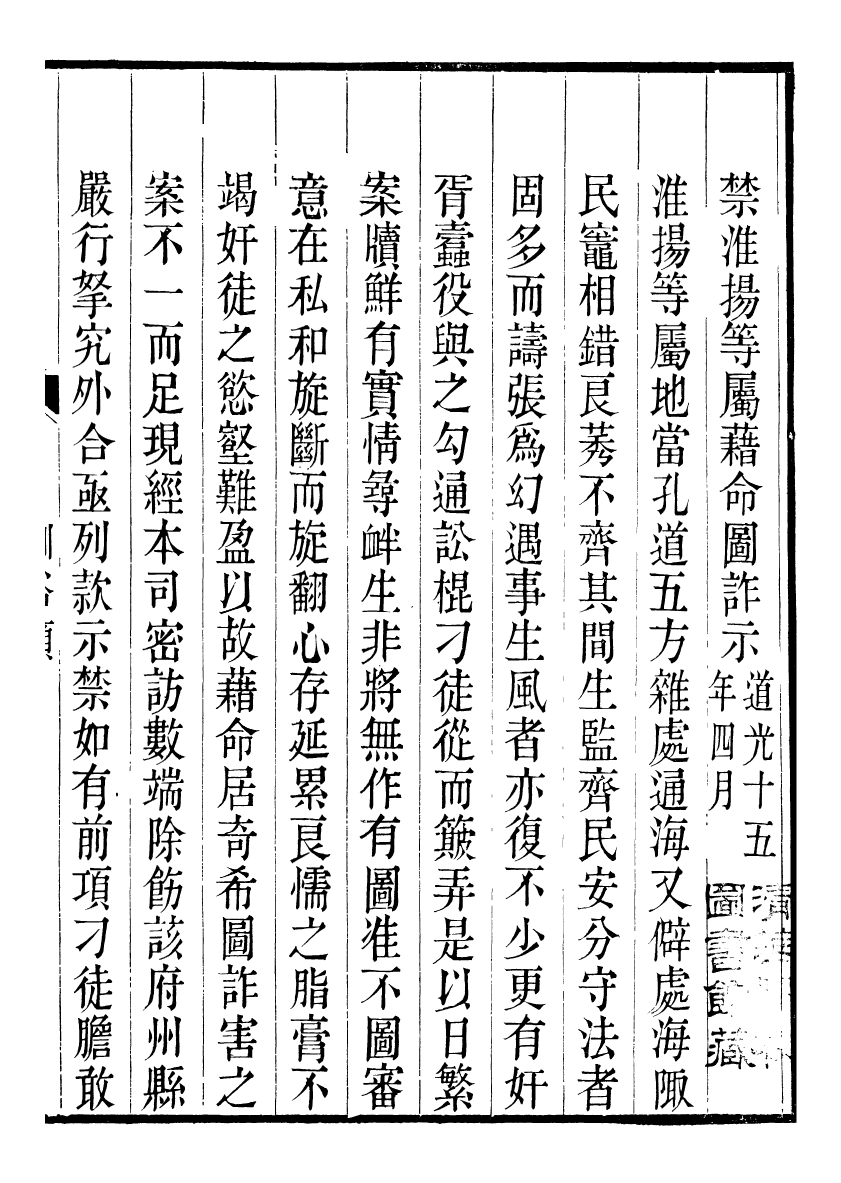 禁淮揚等屬藉命圖詐示道光十五年四月
淮揚等屬地當孔道五方雜處通海又僻處海陬
民竈相錯良莠不齊其間生監齊民安分守法者
固多而譸張爲幻遇事生風者亦復不少更有奸
胥蠹役與之勾通訟棍刁徒從而簸弄是以日繁
案牘鮮有實情尋衅生非將無作有圖准不圖審
意在私和旋斷而旋翻心存延累良懦之脂膏不
竭奸徒之慾壑難盈以故藉命居奇希圖詐害之
案不一而足現經本司密訪數端除飭該府州縣
嚴行拏究外合亟列款示禁如有前項刁徒膽敢
圖書館藏